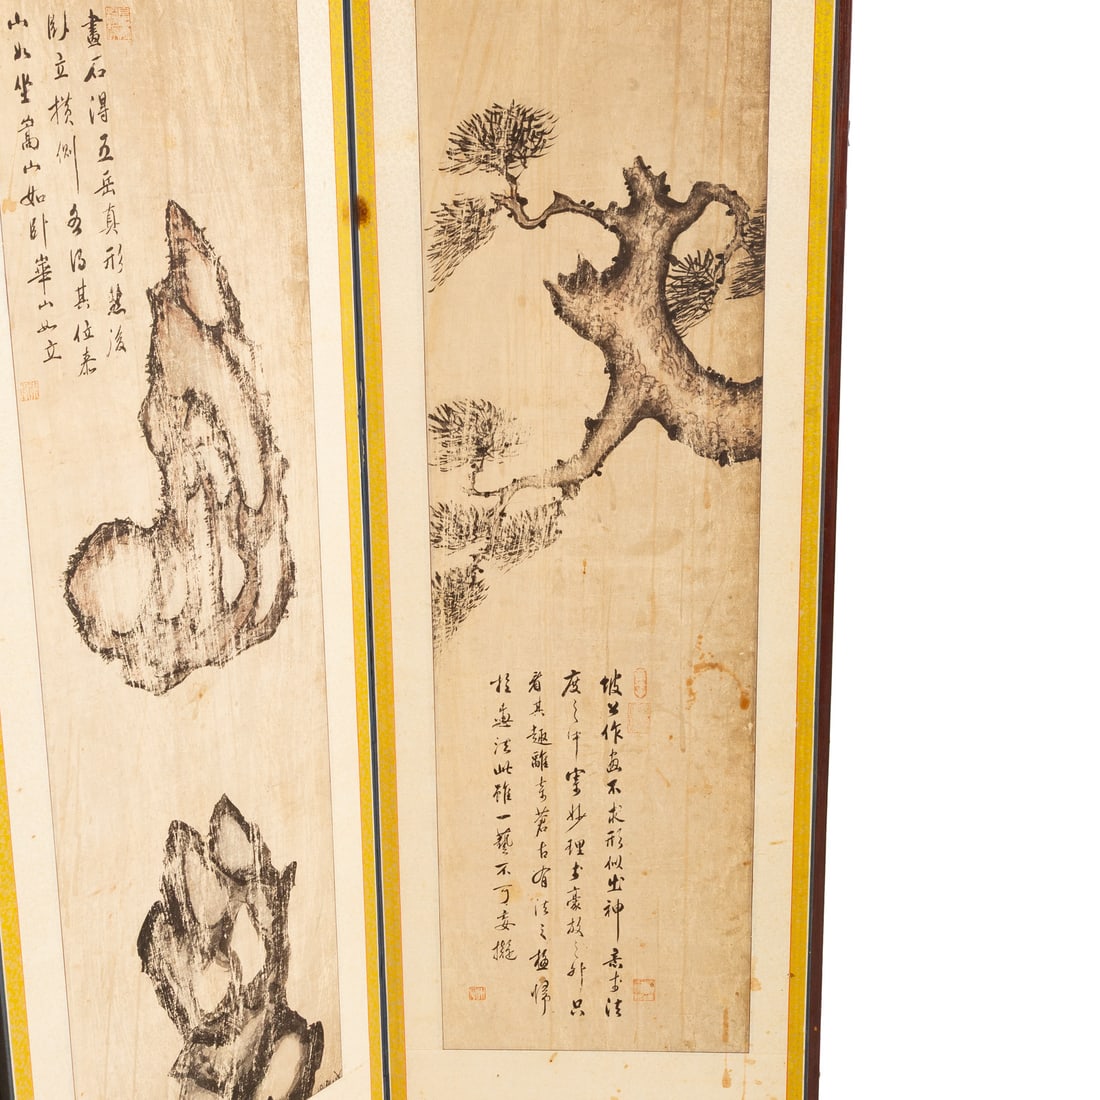 畫石得五岳真形然後
臥立橫側各得其位泰
山如坐嵩山如卧華山如立
坡公作畫不求形似出神意于法
度之中寓妙理于豪放之外只
看其趣離奇蒼古有法之極歸
於無法此雖一藝不可妄擬